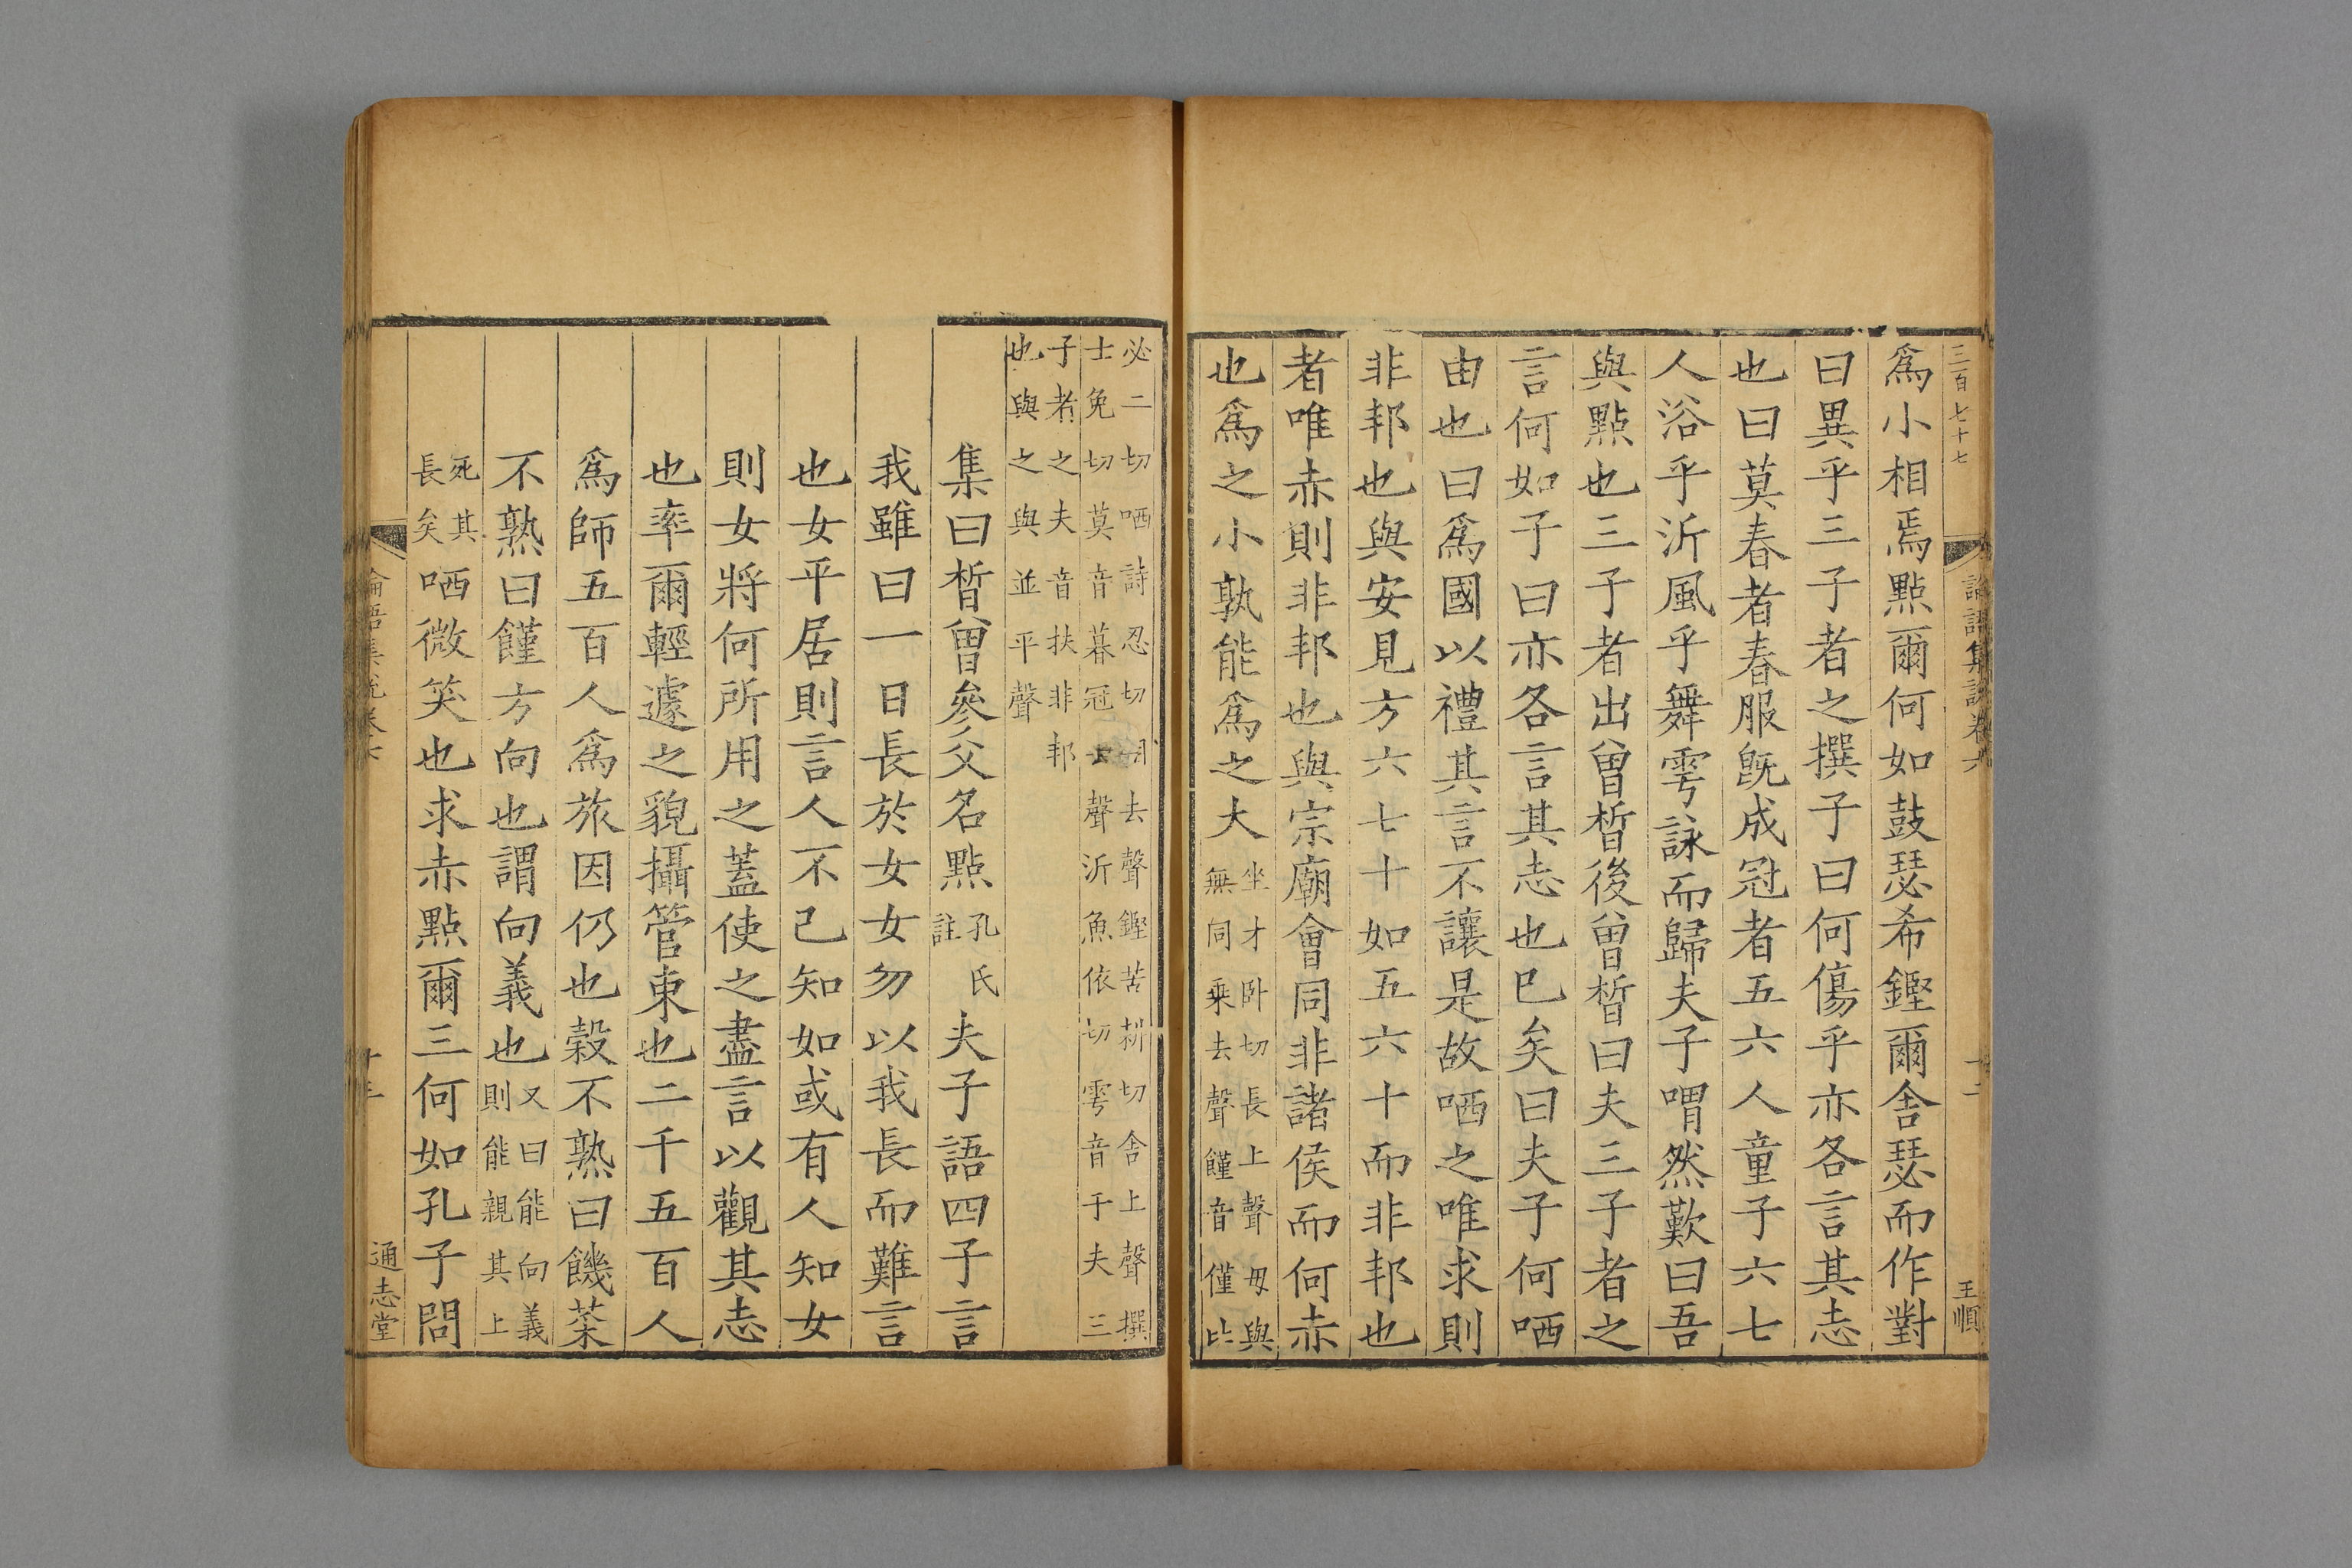 三百七十七
論語集說卷六
十二
王順
爲小相焉點爾何如鼓瑟希鏗爾舍瑟而作對
曰異乎三子者之撰子曰何傷乎亦各言其志
也曰莫春者春服旣成冠者五六人童子六七
人浴乎沂風乎舞雩詠而歸夫子喟然歎曰吾
與點也三子者出曾晳後曾晳曰夫三子者之
言何如子曰亦各言其志也巳矣曰夫子何哂
由也曰爲國以禮其言不讓是故哂之唯求則
非邦也與安見方六七十如五六十而非邦也
者唯赤則非邦也與宗廟會同非諸侯而何赤
也爲之小孰能爲之大
坐才卧切長上聲毋與
無同乘去聲饉音僅比
必二切哂詩忍切去聲鏗苦耕切舍上聲撰
士免切莫音暮冠去聲沂魚依切雩音于夫三
子者之夫音扶非邦
也與之與並平聲
集曰晳曾參父名點
孔氏
註
夫子語四子言
我雖曰一日長於女女勿以我長而難言
也女平居則言人不己知如或有人知女
則女將何所用之蓋使之盡言以觀其志
也率爾輕遽之貌攝管束也二千五百人
爲師五百人爲旅因仍也穀不熟曰饑菜
不熟曰饉方向也謂向義也
又曰能向義
則能親其上
死其
長矣
哂微笑也求赤點爾三何如孔子問
論語集說卷六
十三
通志堂